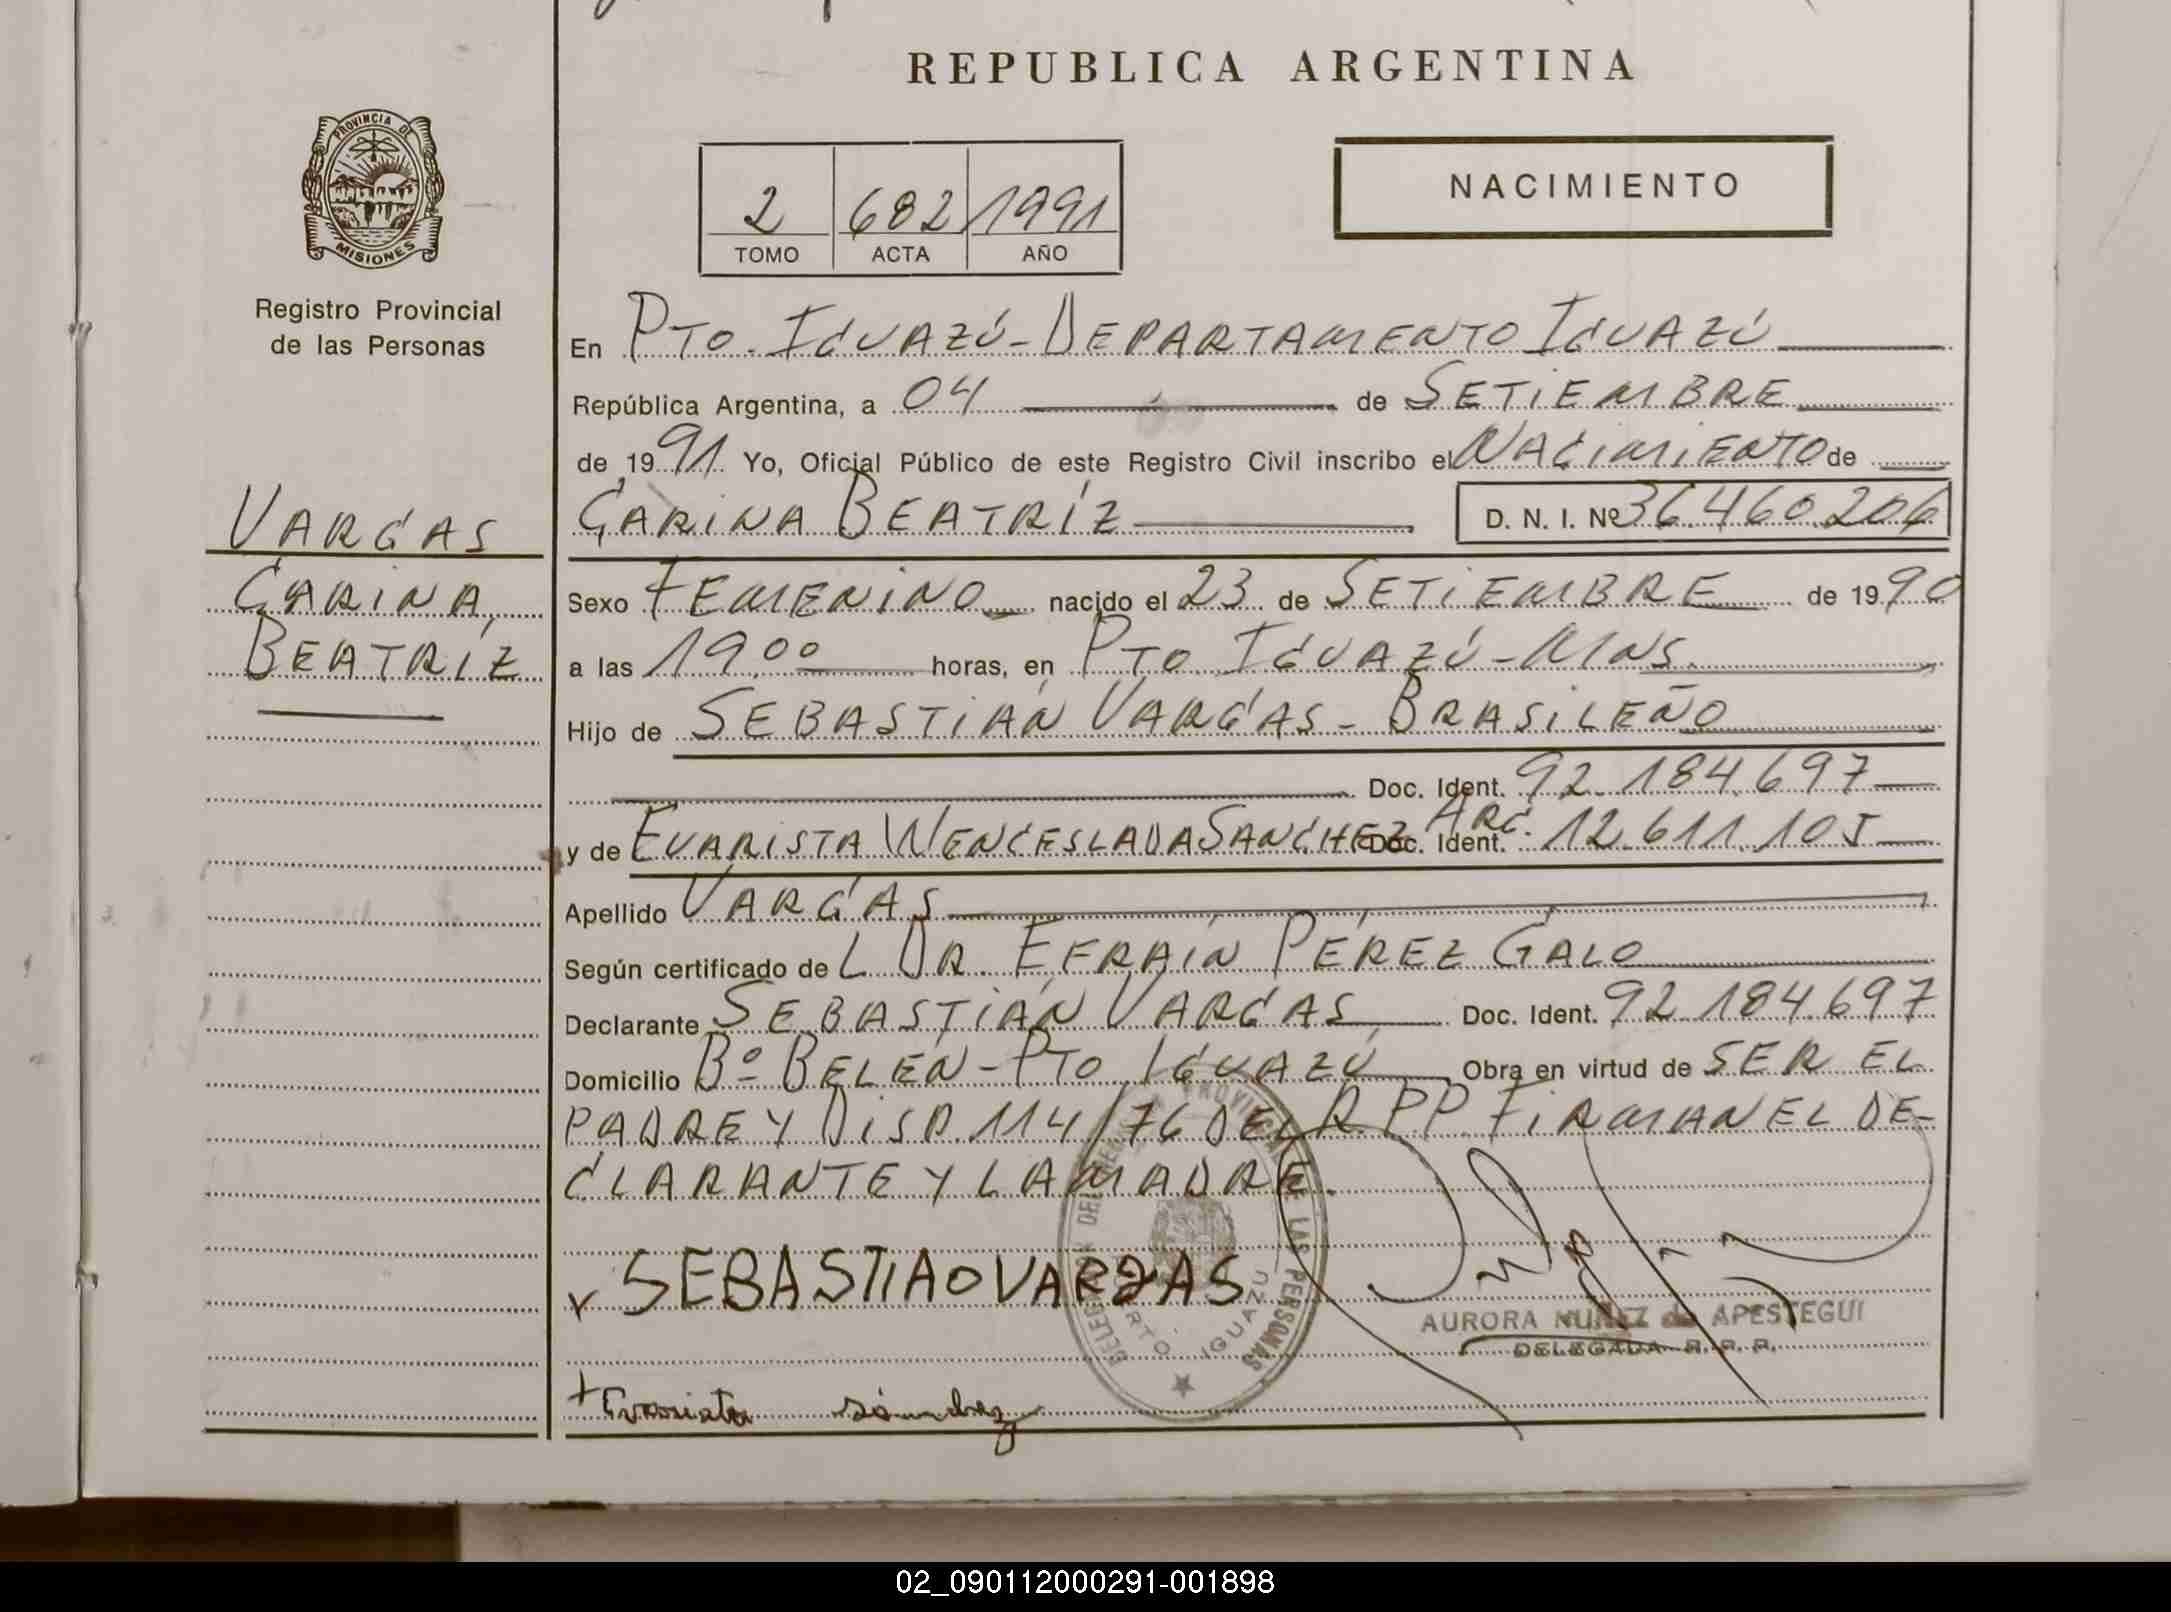 REPUBLICA ARGENTINA
PROVINCIA DE
MISIONES
Registro Provincial
de las Personas
2 682 1991
TOMO ACTA AÑO
NACIMIENTO
En PTO. IGUAZÚ - DEPARTAMENTO IGUAZÚ
República Argentina, a 04 de SETIEMBRE
de 1991 Yo, Oficial Público de este Registro Civil inscribo el NACIMIENTO de
CARINA BEATRÍZ D. N. I. Nº 36.460.206
VARGAS
CARINA
BEATRÍZ
Sexo FEMENINO nacido el 23 de SETIEMBRE de 1990
a las 19,00 horas, en PTO IGUAZÚ - MNS.
Hijo de SEBASTIÁN VARGAS - BRASILEÑO
Doc. Ident. 92.184.697
y de EVARISTA WENCESLADA SANCHEZ ARG. Doc. Ident. 12.611.105
Apellido VARGAS
Según certificado de L DR. EFRAÍN PÉREZ GALO
Declarante SEBASTIÁN VARGAS Doc. Ident. 92.184.697
Domicilio Bº BELÉN - PTO IGUAZÚ Obra en virtud de SER EL
PADRE Y DISP. 114/76 DEL R.P.P. FIRMAN EL DE-
CLARANTE Y LA MADRE.
v SEBASTIAO VARGAS
AURORA NUÑEZ de APESTEGUI
DELEGADA R. P. P.
+ Evarista Sánchez
PTO. IGUAZU
02_090112000291-001898